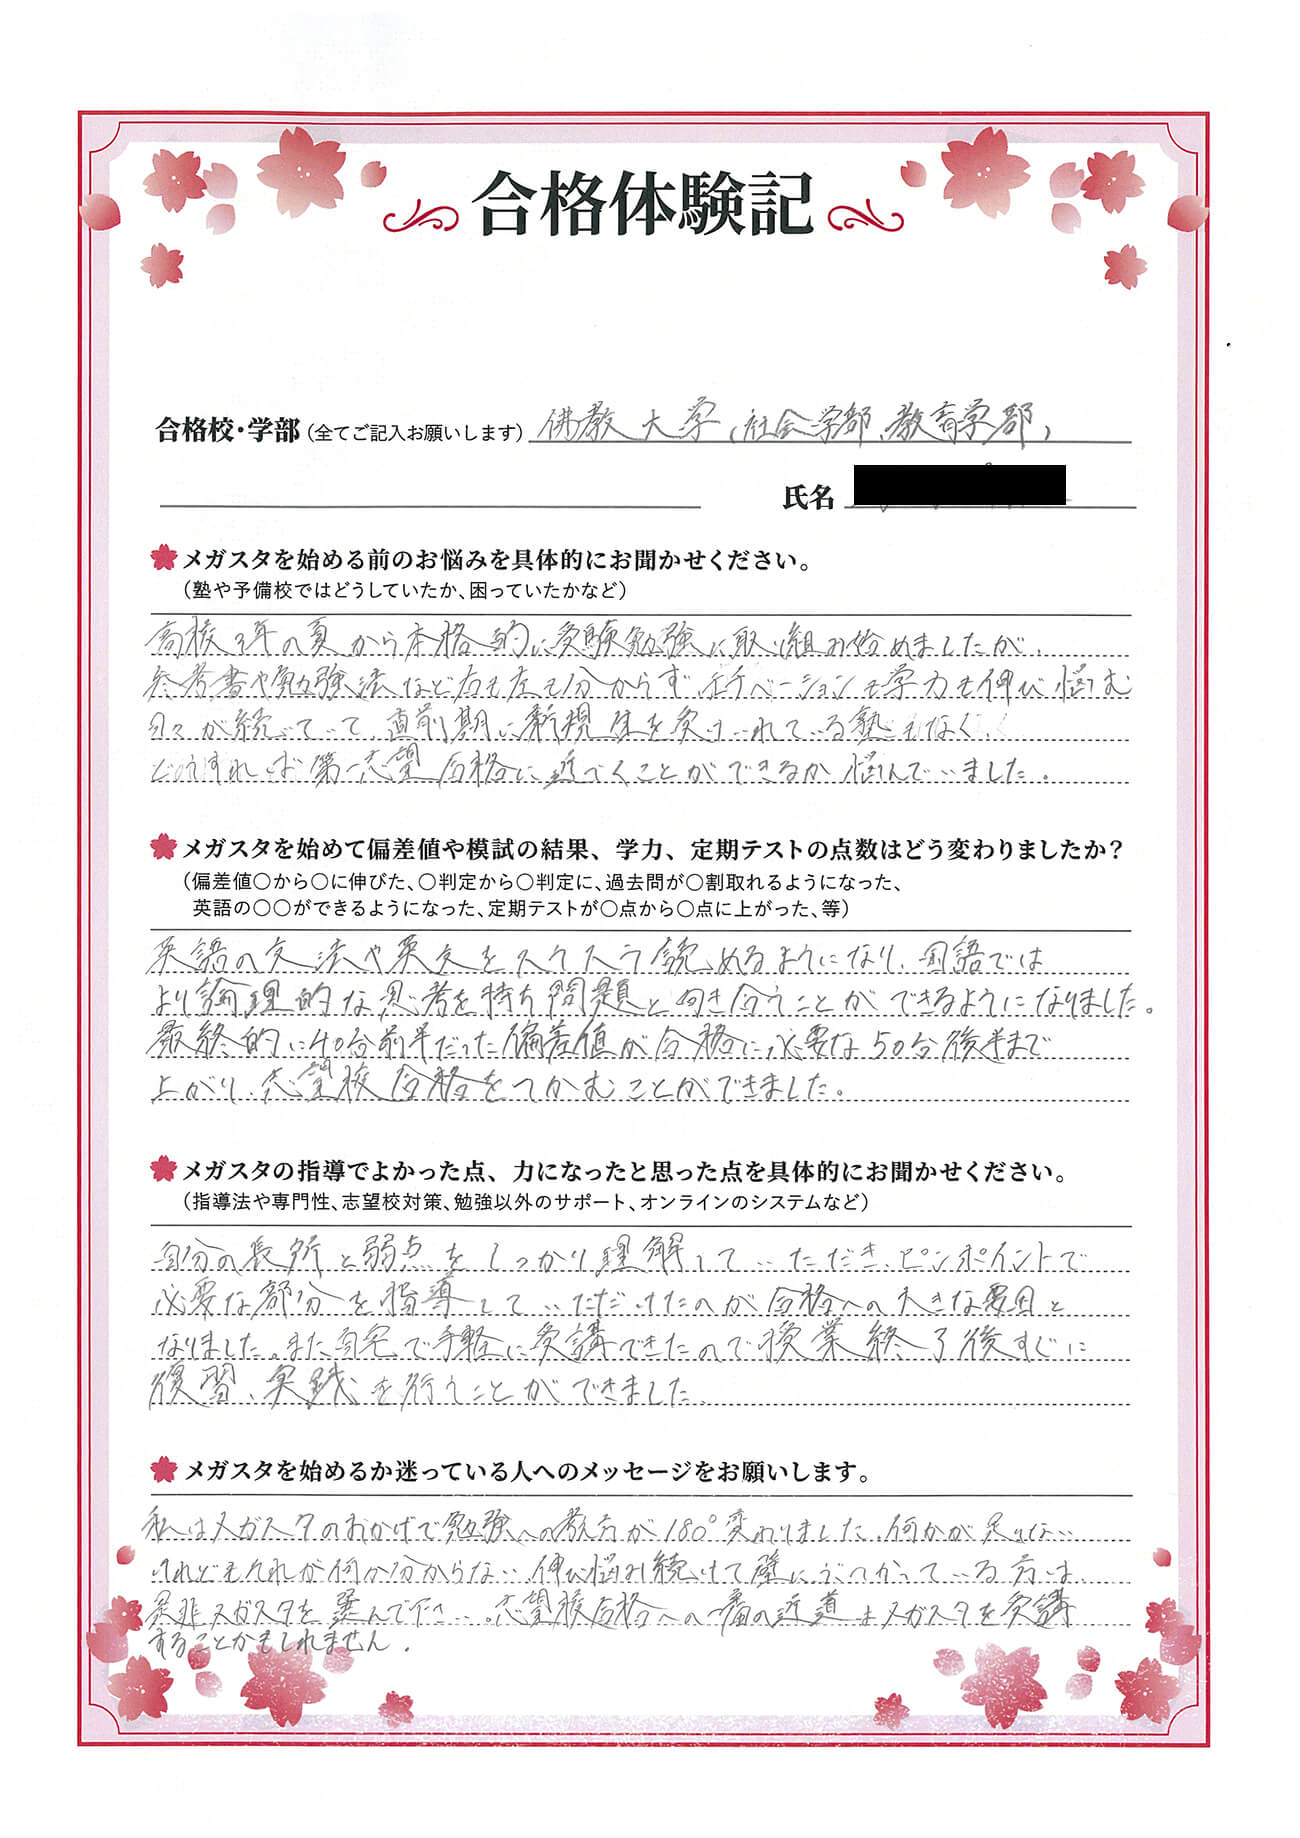 合格体験記
合格校・学部(全てご記入お願いします) 佛教大学(社会学部、教育学部)
氏名
メガスタを始める前のお悩みを具体的にお聞かせください。
(塾や予備校ではどうしていたか、困っていたかなど)
高校3年の夏から本格的に受験勉強に取り組み始めましたが、
参考書や勉強法など右も左も分からず、モチベーションも学力も伸び悩む
日々が続いていて、直前期に新規生を受け入れている塾もなく
どうすれば第一志望合格に近づくことができるか悩んでいました。
メガスタを始めて偏差値や模試の結果、学力、定期テストの点数はどう変わりましたか?
(偏差値○から○に伸びた、○判定から○判定に、過去問が○割取れるようになった、
英語の○○ができるようになった、定期テストが○点から○点に上がった、等)
英語の文法や英文をスラスラ読めるようになり、国語では
より論理的な思考を持ち問題と向き合うことができるようになりました。
最終的に40台前半だった偏差値が合格に必要な50台後半まで
上がり、志望校合格をつかむことができました。
メガスタの指導でよかった点、力になったと思った点を具体的にお聞かせください。
(指導法や専門性、志望校対策、勉強以外のサポート、オンラインのシステムなど)
自分の長所と弱点をしっかり理解していただき、ピンポイントで
必要な部分を指導していただけたのが合格への大きな要因と
なりました。また自宅で手軽に受講できたので授業終了後すぐに
復習、実践を行うことができました。
メガスタを始めるか迷っている人へのメッセージをお願いします。
私はメガスタのおかげで勉強への教方が180°変わりました。何かが足りない
けれどもそれが何か分からない、伸び悩み続けて壁にぶつかっている方は、
是非メガスタを選んで下さい。志望校合格への一番の近道はメガスタを受講
することかもしれません。